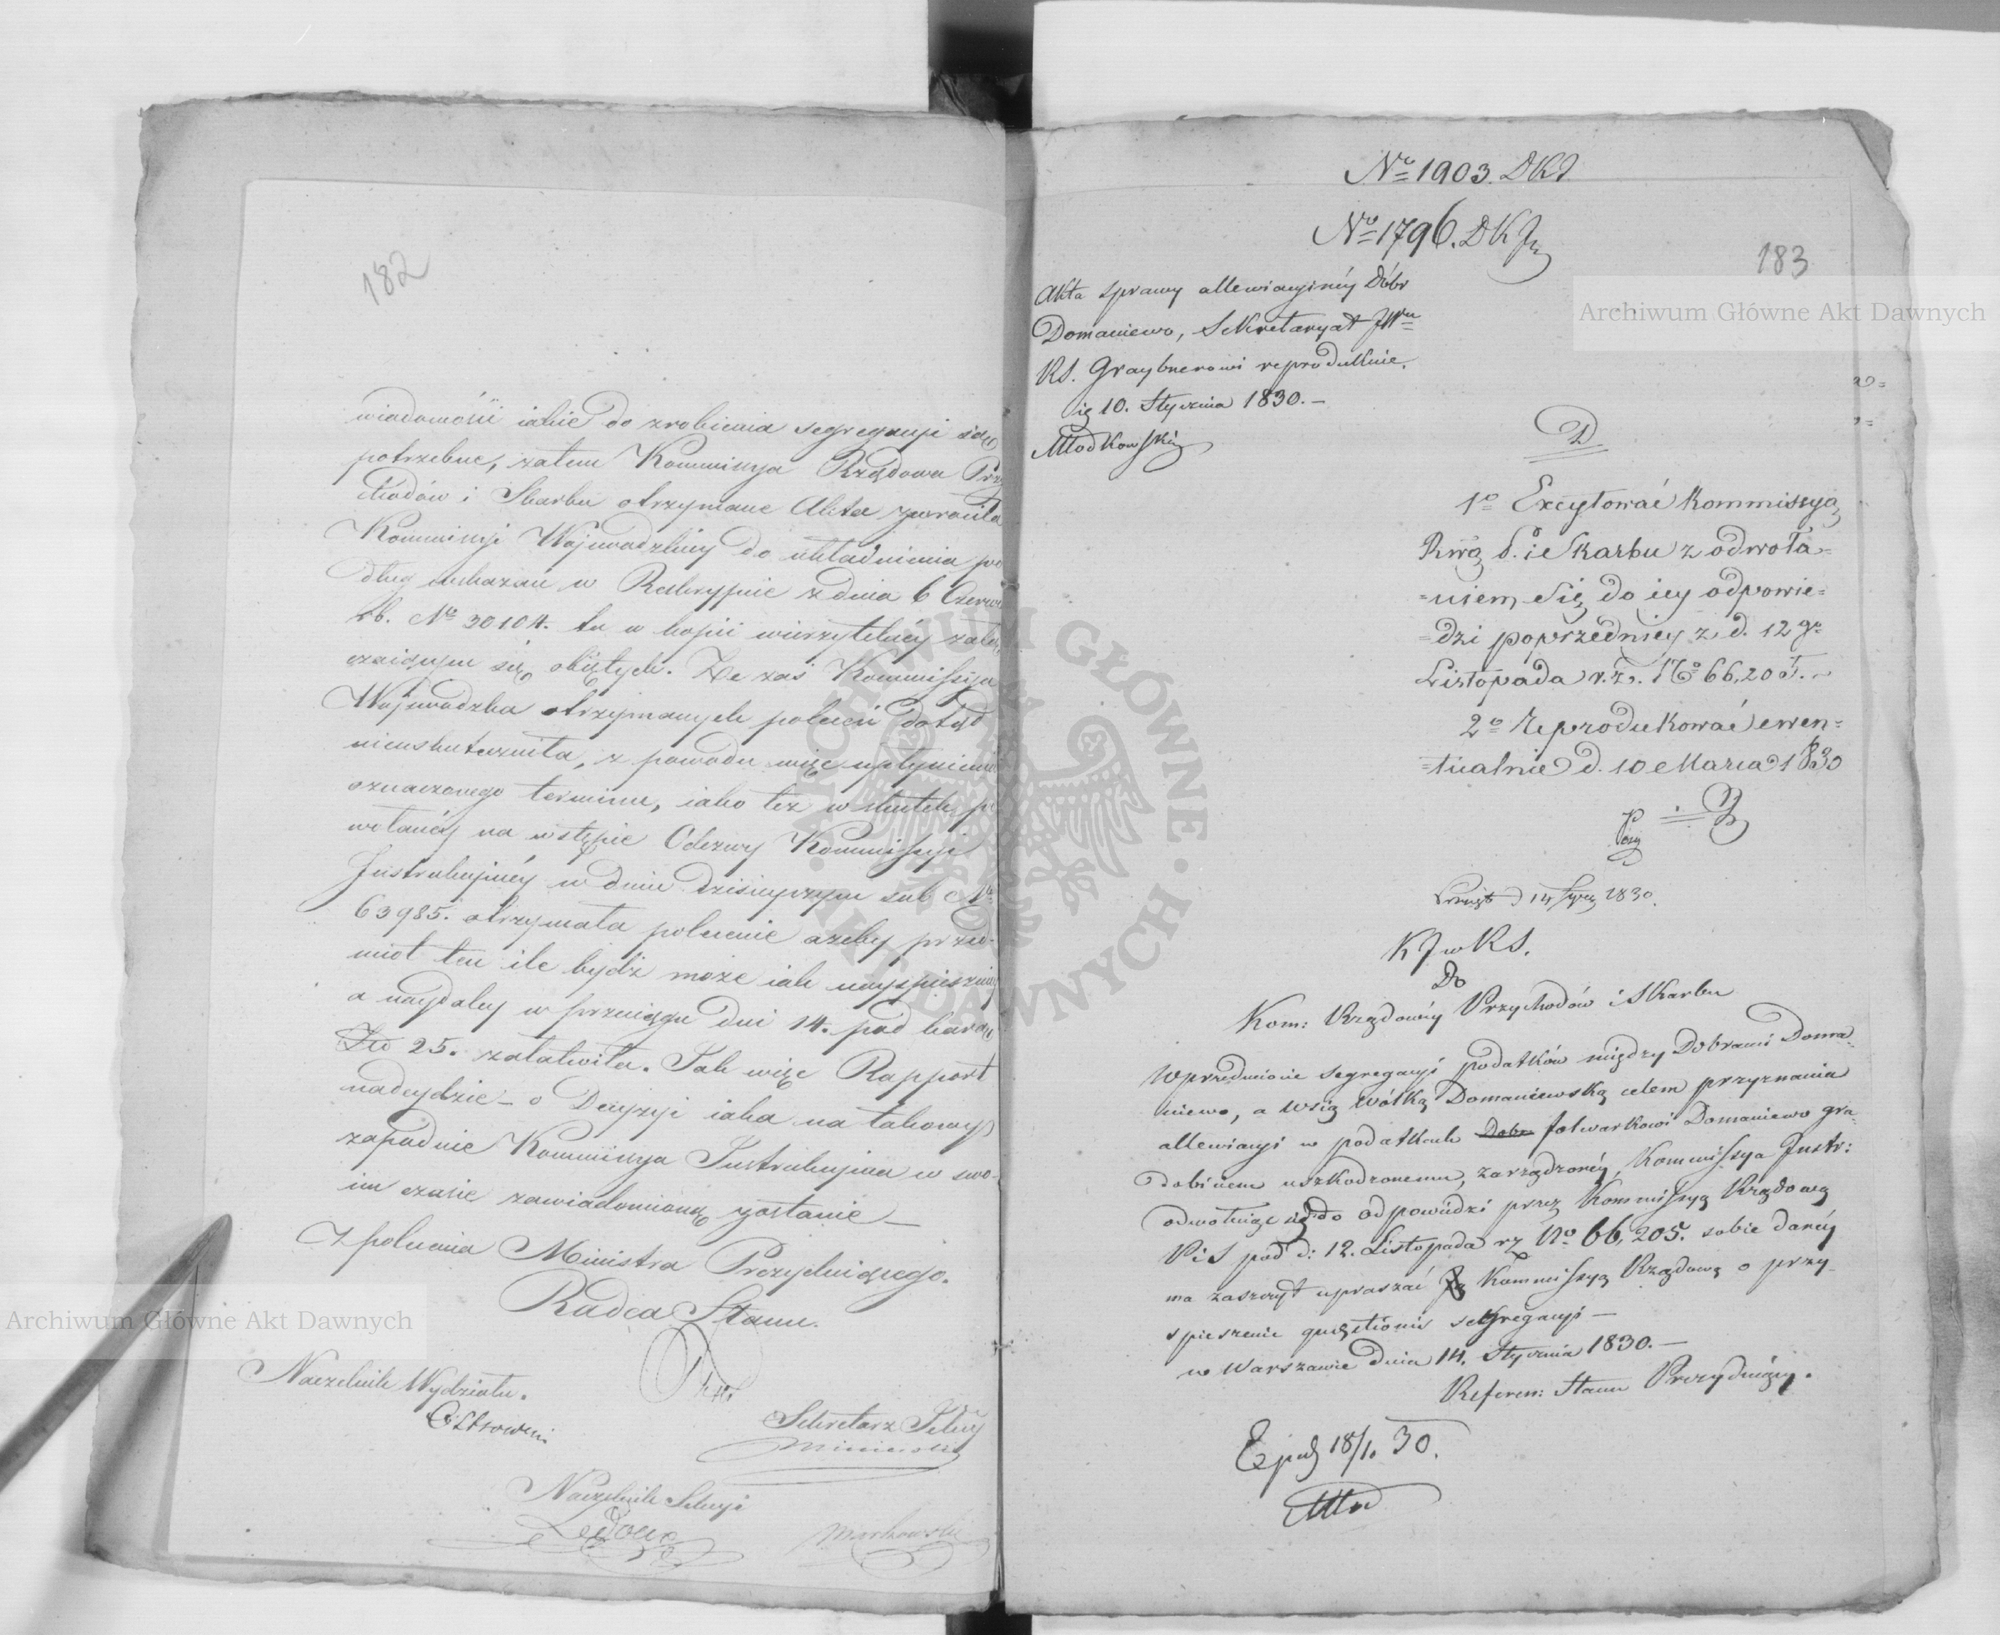 182
wiadomości iakie do zrobienia segregacyi są
potrzebne, zatem Kommissya Rządowa Przy
chodów i Skarbu otrzymane Akta zwróciła
Kommissyi Wojewodzkiey do uskładnienia po
dług wskazań w Reskrypcie z dnia 6 Czerwca
rb. No 30104. tu w kopii wierzytelnéy załą
czaiącym się obiętych. Że zaś Kommissya
Wojewodzka otrzymanych poleceń dotąd
nieuskuteczniła, z powodu więc upłynienia
oznaczonego terminu, iako też w skutek po
wołanéy na wstępie Odezwy Kommissyi
Instrukcyinéy w dniu dzisieyszym sub No
63985. otrzymała polecenie ażeby przed-
miot ten ile bydź może iak nayspieszniey
a naydaley w przeciągu dni 14. pod karą
Złp 25. załatwiła. Jak więc Rapport
nadeydzie – o Decyzyi iaka na takowy
zapadnie Kommissya Instrukcyina w swo-
im czasie zawiadomioną zostanie –
Z polecenia Ministra Prezyduiącego.
Radca Stanu.
Naczelnik Wydziału.
Sekretarz Jlny
Naczelnik Sekcyi
Markowski
No 1903. DKJ
No 1796. DKJ
183
Akta sprawy allewiacyinéy Dóbr
Domaniewo, Sekretaryat JWu
RS. Graybnerowi reprodukuie.
10. Stycznia 1830. –
Młodkowski
D
1o Excytować Kommissyą
Rwą P. i Skarbu z odwoła=
=niem Się do iey odpowie=
=dzi poprzedniey z d. 12 go
Listopada r. z. No 66,205. –
2o Reprodukować ewen=
=tualnie d. 10 Marca 1830
14 1830.
KJwKS.
Do
Kom: Rządowéy Przychodów i Skarbu
W przedmiocie segregacyi podatków między Dobrami Doma-
niewo, a wsią Wólką Domaniewską celem przyznania
allewiacyi w podatkach Dobr folwarkowi Domaniewo gra-
dobiciem uszkodzonemu, zarządzonéy, Kommissya Instr:
odwołuiąc się do odpowiedzi przez Kommissyą Rządową
P i S pod d: 12. Listopada rz No 66,205. sobie danéy
ma zaszczyt upraszać Kommissyą Rządową o przy-
spieszenie questionis segregacyi –
w Warszawie dnia 14. Stycznia 1830. –
Referen: Stanu Prezyduiący.
Exped 18/1. 30.
Archiwum Główne Akt Dawnych
Archiwum Główne Akt Dawnych
ARCHIWUM GŁÓWNE · AKT DAWNYCH ·